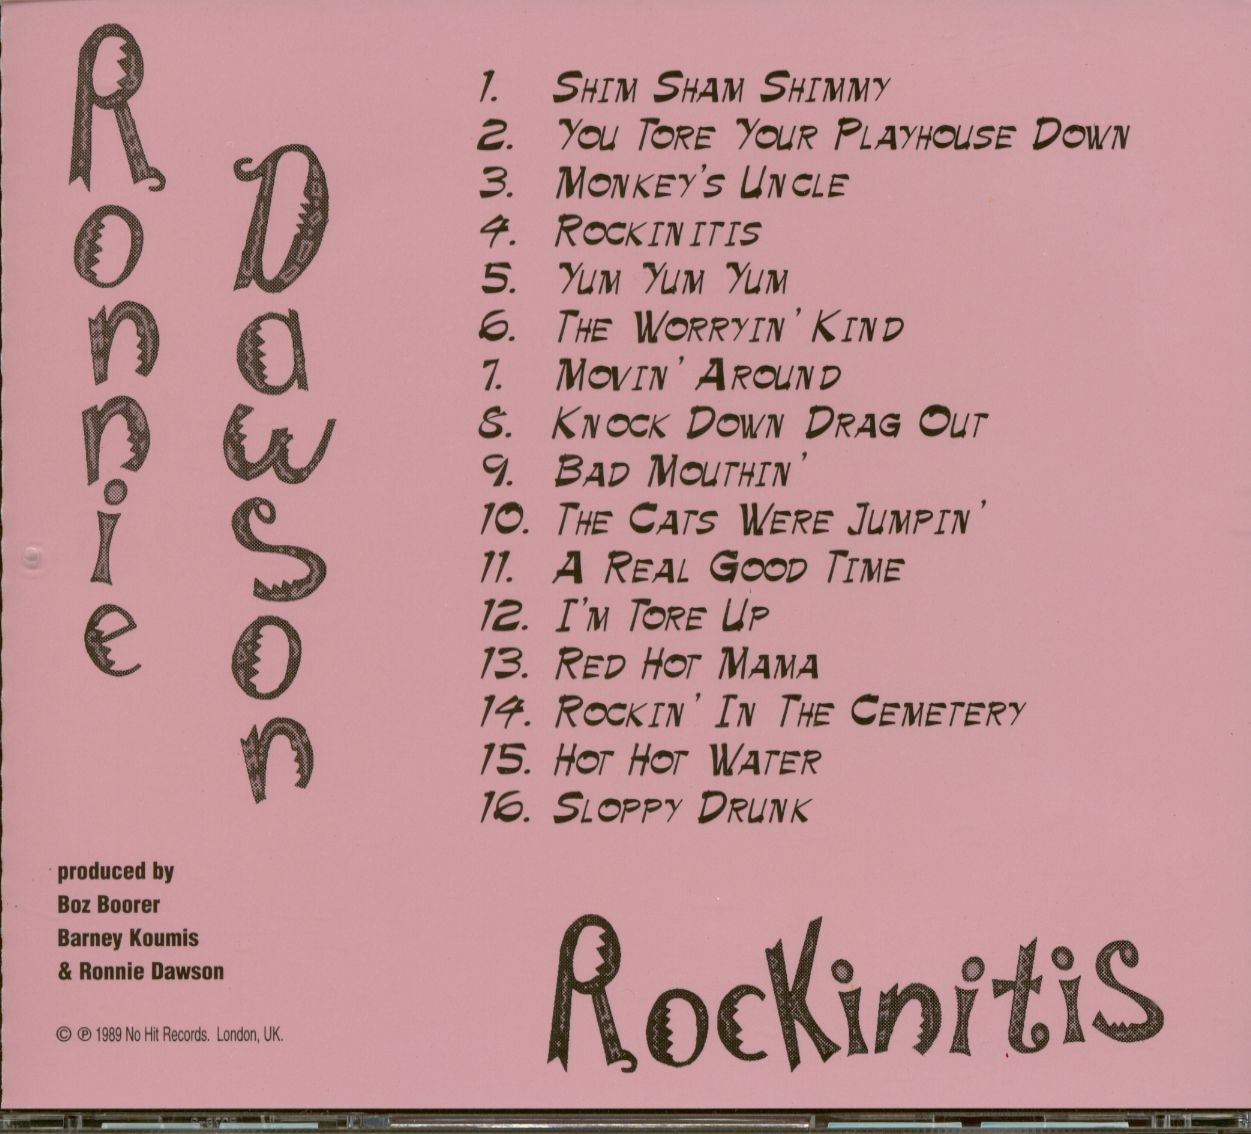 Ronnie
Dawson
1. Shim Sham Shimmy
2. You Tore Your Playhouse Down
3. Monkey's Uncle
4. Rockinitis
5. Yum Yum Yum
6. The Worryin' Kind
7. Movin' Around
8. Knock Down Drag Out
9. Bad Mouthin'
10. The Cats Were Jumpin'
11. A Real Good Time
12. I'm Tore Up
13. Red Hot Mama
14. Rockin' In The Cemetery
15. Hot Hot Water
16. Sloppy Drunk
produced by
Boz Boorer
Barney Koumis
& Ronnie Dawson
© ℗ 1989 No Hit Records. London, UK.
Rockinitis